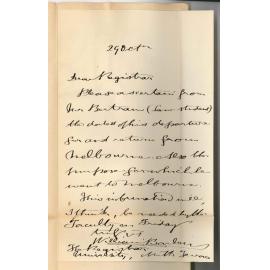 29 Oct
Dear Registrar
Please ascertain from
Mr Bertram (Law student)
the date of his departure
for and return from
Melbourne. Also the
purpose for which he
went to Melbourne.
This information will
I think, be needed by the
Faculty on Friday
The Registrar
University